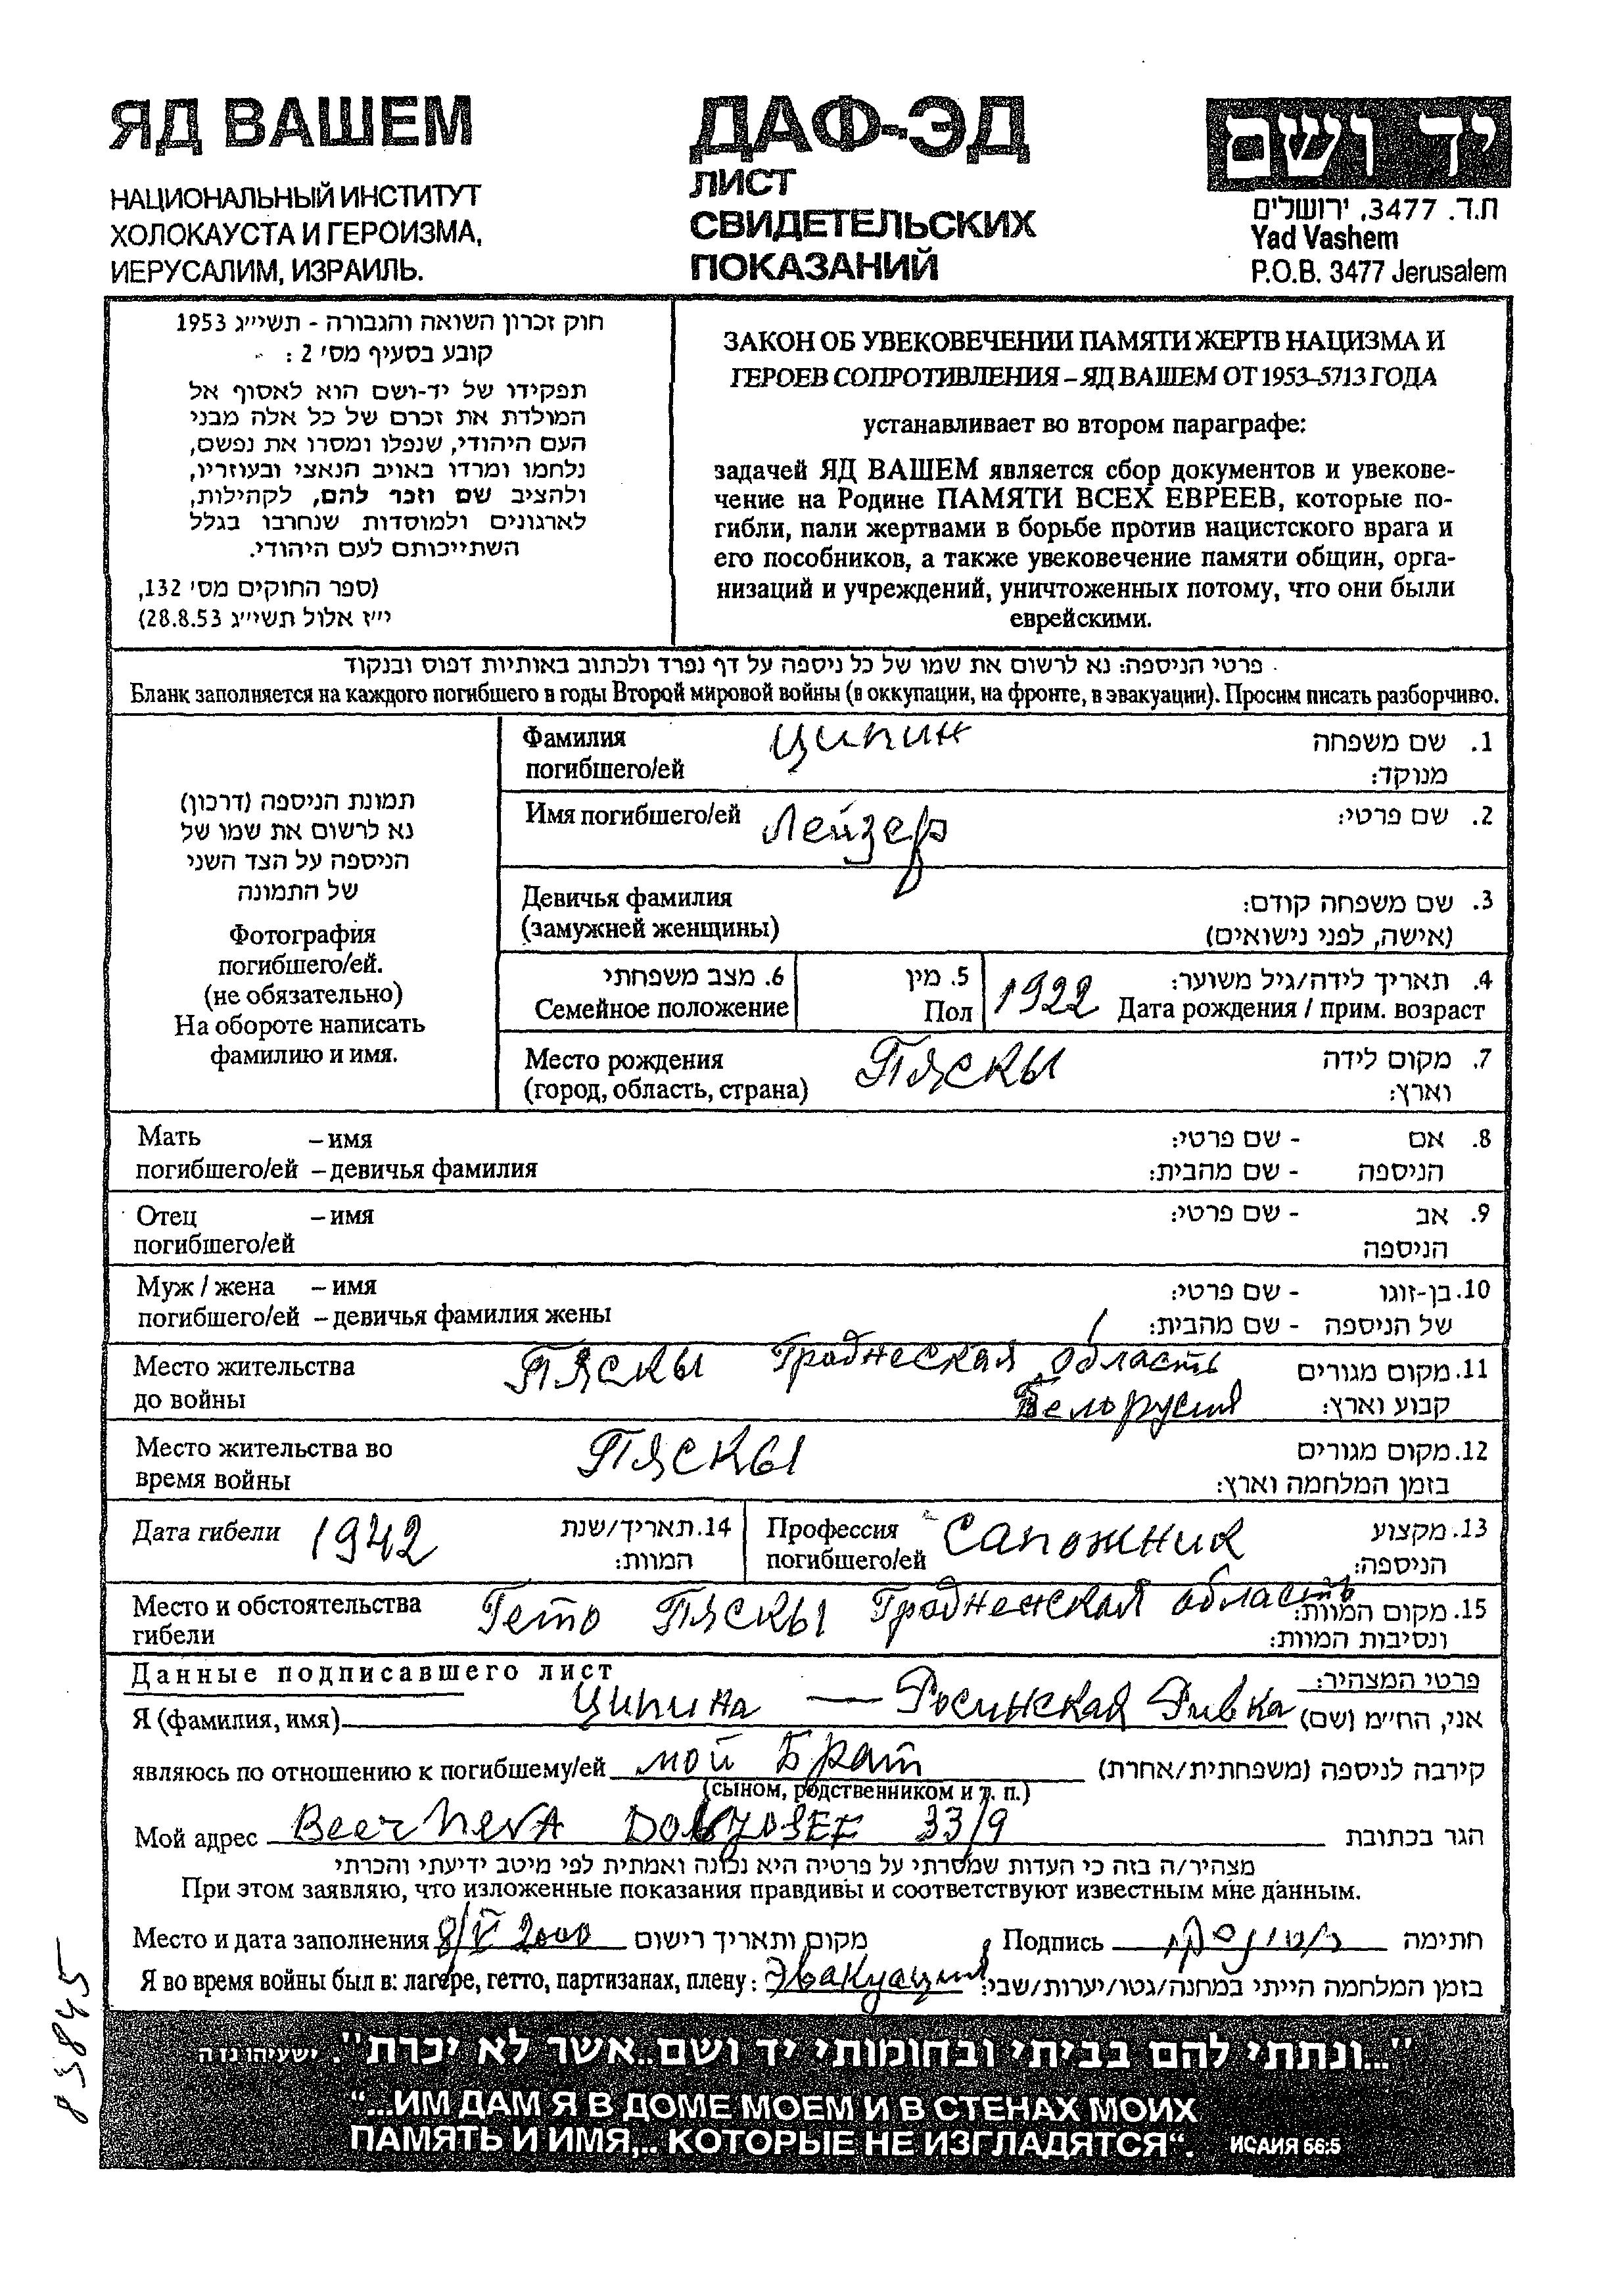 ЯД ВАШЕМ
НАЦИОНАЛЬНЫЙ ИНСТИТУТ
ХОЛОКАУСТА И ГЕРОИЗМА,
ИЕРУСАЛИМ, ИЗРАИЛЬ.
ДАФ-ЭД
ЛИСТ
СВИДЕТЕЛЬСКИХ
ПОКАЗАНИЙ
יד ושם
ת.ד. 3477, ירושלים
Yad Vashem
P.O.B. 3477 Jerusalem
חוק זכרון השואה והגבורה - תשי״ג 1953
קובע בסעיף מס׳ 2 :
תפקידו של יד-ושם הוא לאסוף אל
המולדת את זכרם של כל אלה מבני
העם היהודי, שנפלו ומסרו את נפשם,
נלחמו ומרדו באויב הנאצי ובעוזריו,
ולהציב שם וזכר להם, לקהילות,
לארגונים ולמוסדות שנחרבו בגלל
השתייכותם לעם היהודי.
(ספר החוקים מס׳ 132,
י״ז אלול תשי״ג 28.8.53)
ЗАКОН ОБ УВЕКОВЕЧЕНИИ ПАМЯТИ ЖЕРТВ НАЦИЗМА И
ГЕРОЕВ СОПРОТИВЛЕНИЯ – ЯД ВАШЕМ ОТ 1953–5713 ГОДА
устанавливает во втором параграфе:
задачей ЯД ВАШЕМ является сбор документов и увекове-
чение на Родине ПАМЯТИ ВСЕХ ЕВРЕЕВ, которые по-
гибли, пали жертвами в борьбе против нацистского врага и
его пособников, а также увековечение памяти общин, орга-
низаций и учреждений, уничтоженных потому, что они были
еврейскими.
פרטי הניספה: נא לרשום את שמו של כל ניספה על דף נפרד ולכתוב באותיות דפוס ובנקוד
Бланк заполняется на каждого погибшего в годы Второй мировой войны (в оккупации, на фронте, в эвакуации). Просим писать разборчиво.
תמונת הניספה (דרכון)
נא לרשום את שמו של
הניספה על הצד השני
של התמונה
Фотография
погибшего/ей.
(не обязательно)
На обороте написать
фамилию и имя.
Фамилия Ципин 1. שם משפחה
погибшего/ей מנוקד:
Имя погибшего/ей Лейзер 2. שם פרטי:
Девичья фамилия 3. שם משפחה קודם:
(замужней женщины) (אישה, לפני נישואים)
6. מצב משפחתי 5. מין 4. תאריך לידה/גיל משוער:
Семейное положение Пол 1922 Дата рождения / прим. возраст
Место рождения Пяскы 7. מקום לידה
(город, область, страна) וארץ:
Мать – имя 8. אם - שם פרטי:
погибшего/ей – девичья фамилия הניספה - שם מהבית:
Отец – имя 9. אב - שם פרטי:
погибшего/ей הניספה
Муж / жена – имя 10. בן-זוגו - שם פרטי:
погибшего/ей – девичья фамилия жены של הניספה - שם מהבית:
Место жительства Пяскы Гроднеская область 11. מקום מגורים
до войны Белорусия קבוע וארץ:
Место жительства во Пяскы 12. מקום מגורים
время войны בזמן המלחמה וארץ:
Дата гибели 1942 14. תאריך/שנת המוות:
Профессия Сапожник 13. מקצוע
погибшего/ей הניספה:
Место и обстоятельства Гето Пяскы Гродненская область 15. מקום המוות:
гибели ונסיבות המוות:
Данные подписавшего лист פרטי המצהיר:
Я (фамилия, имя) Ципина — Росинская Ривка אני, החי״מ (שם)
являюсь по отношению к погибшему/ей мой Брат קירבה לניספה (משפחתית/אחרת)
(сыном, родственником и т. п.)
Мой адрес 33/9 הגר בכתובת
מצהיר/ה בזה כי העדות שמסרתי על פרטיה היא נכונה ואמתית לפי מיטב ידיעתי והכרתי
При этом заявляю, что изложенные показания правдивы и соответствуют известным мне данным.
Место и дата заполнения 8/V 2000 מקום ותאריך רישום Подпись חתימה
Я во время войны был в: лагере, гетто, партизанах, плену: Эвакуация בזמן המלחמה הייתי במחנה/גטו/יערות/שבי:
"...ונתתי להם בביתי ובחומותי יד ושם..אשר לא יכרת". ישעיהו נו ה
“...ИМ ДАМ Я В ДОМЕ МОЕМ И В СТЕНАХ МОИХ
ПАМЯТЬ И ИМЯ,.. КОТОРЫЕ НЕ ИЗГЛАДЯТСЯ“. ИСАИЯ 56:5